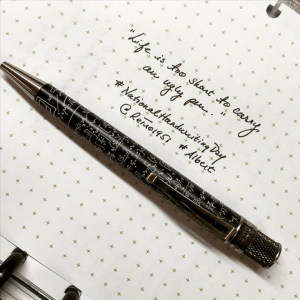 "Life is too short to carry
an ugly pen."
#NationalHandwritingDay
@Reino1951 #Albert